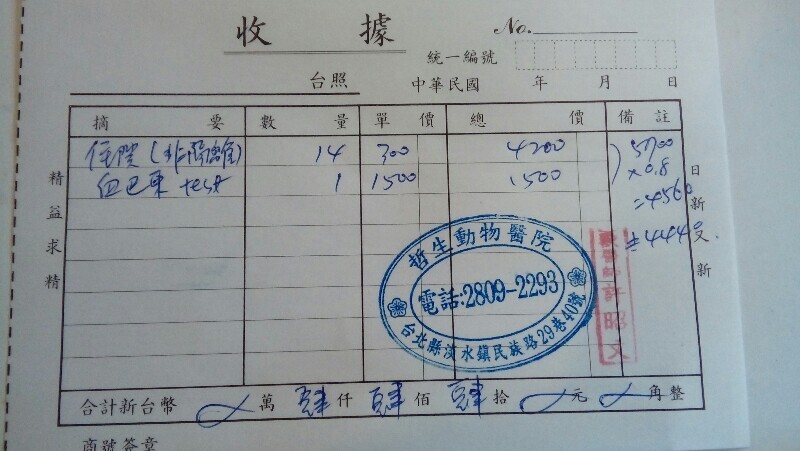 收據
No.
統一編號
台照 中華民國 年 月 日
摘要 數量 單價 總價 備註
住院(非隔離) 14 300 4200 5700
血巴東 test 1 1500 1500 x0.8
=4560
≐4440
精益求精
日新又新
哲生動物醫院
電話:2809-2293
台北縣淡水鎮民族路29巷40號
獸醫師許昭文
合計新台幣 萬 肆仟 肆佰 肆拾 元 角整
商號簽章